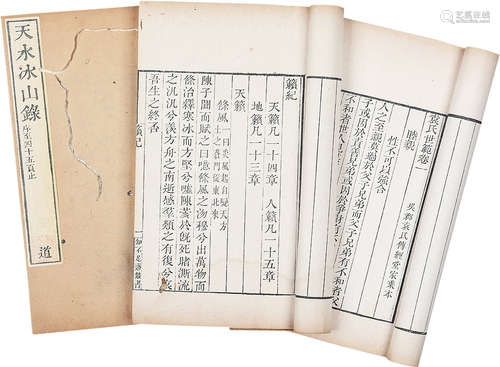 袁氏世範卷一
吳郡袁氏傳經堂家本
睦親
性不可以強合
人之至親莫過於父子兄弟而父子兄弟有不和者父
子或因於責善兄弟或因於爭財有不因責
不和者世人
籟紀
天籟凡一十四章 人籟凡一十五章
地籟凡一十三章
天籟
條風一曰炎風起自變天方
土之蒼門從東北來
陳子聞而賦之曰噫條風之沕穆兮出萬物而
條治釋寒冰而方堅兮噓陳荄於旣死睹澌流
之汎汎兮羨方舟之南逝感羣類之有復兮哀
吾生之終吝
籟紀
一
知不足齋叢書
天水冰山錄
序至四十五頁止
道
艺典中国